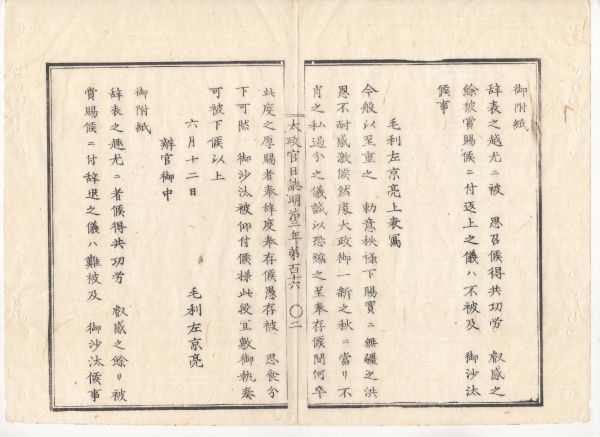 御附紙
辞表之趣尤ニ被　思召候得共功労　叡感之
餘被賞賜候ニ付返上之儀ハ不被及　御沙汰
候事
毛利左京亮上表寫
今般以至重之　勅意秩禄下賜實ニ無疆之洪
恩不耐感激候然處大政御一新之秋ニ當リ不
肖之私過分之儀誠以恐縮之至奉存候間何卒
太政官日誌明治二年第百十六　〇二
此度之厚賜者奉辞度奉存候愚存被　思食分
下可然　御沙汰被仰付候様此段宜敷御執奏
可被下候以上
六月十二日　毛利左京亮
辨官御中
御附紙
辞表之趣尤ニ者候得共功労　叡感之餘リ被
賞賜候ニ付辞退之儀ハ難被及　御沙汰候事